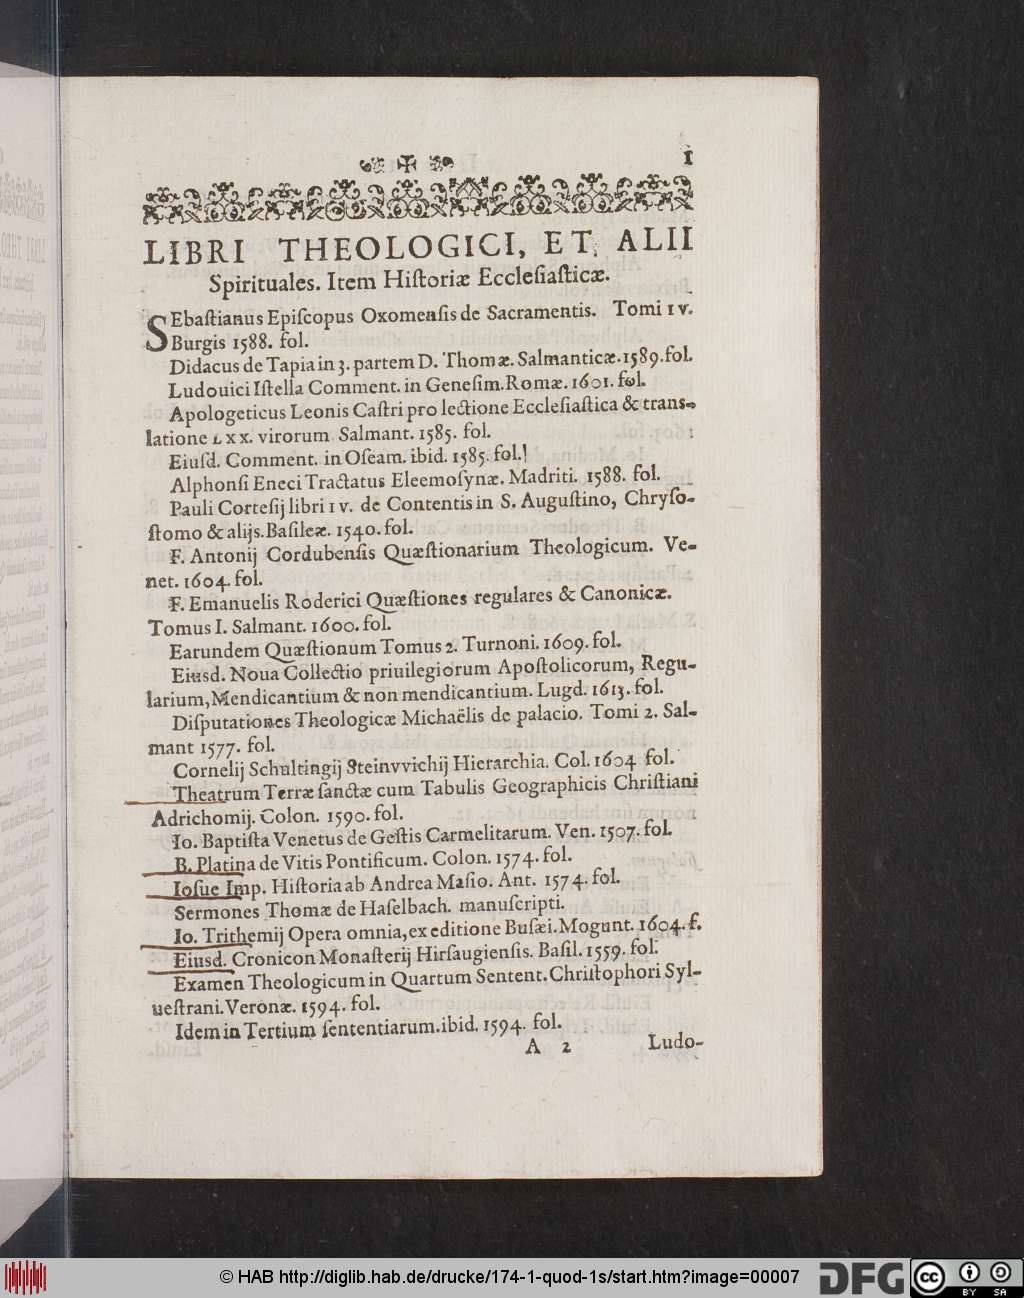 1
LIBRI THEOLOGICI, ET, ALII
Spirituales. Item Hiſtoriæ Eccleſiaſticæ.
SEbaſtianus Epiſcopus Oxomenſis de Sacramentis. Tomi IV.
Burgis 1588. fol.
Didacus de Tapia in 3. partem D. Thomæ. Salmanticæ. 1589. fol.
Ludouici Iſtella Comment. in Geneſim. Romæ. 1601. fol.
Apologeticus Leonis Caſtri pro lectione Eccleſiaſtica & trans-
latione LXX. virorum Salmant. 1585. fol.
Eiuſd. Comment. in Oſeam. ibid. 1585. fol.
Alphonſi Eneci Tractatus Eleemoſynæ. Madriti. 1588. fol.
Pauli Corteſij libri IV. de Contentis in S. Auguſtino, Chryſo-
ſtomo & alijs. Baſileæ. 1540. fol.
F. Antonij Cordubenſis Quæſtionarium Theologicum. Ve-
net. 1604. fol.
F. Emanuelis Roderici Quæſtiones regulares & Canonicæ.
Tomus I. Salmant. 1600. fol.
Earundem Quæſtionum Tomus 2. Turnoni. 1609. fol.
Eiusd. Noua Collectio priuilegiorum Apoſtolicorum, Regu-
larium, Mendicantium & non mendicantium. Lugd. 1613. fol.
Diſputationes Theologicæ Michaëlis de palacio. Tomi 2. Sal-
mant 1577. fol.
Cornelij Schultingij Steinvvichij Hierarchia. Col. 1604 fol.
Theatrum Terræ ſanctæ cum Tabulis Geographicis Chriſtiani
Adrichomij. Colon. 1590. fol.
Io. Baptiſta Venetus de Geſtis Carmelitarum. Ven. 1507. fol.
B. Platina de Vitis Pontificum. Colon. 1574. fol.
Ioſue Imp. Hiſtoria ab Andrea Maſio. Ant. 1574. fol.
Sermones Thomæ de Haſelbach. manuſcripti.
Io. Trithemij Opera omnia, ex editione Buſæi. Mogunt. 1604. f.
Eiusd. Cronicon Monaſterij Hirſaugienſis. Baſil. 1559. fol.
Examen Theologicum in Quartum Sentent. Chriſtophori Syl-
ueſtrani. Veronæ. 1594. fol.
Idem in Tertium ſententiarum. ibid. 1594. fol.
A 2 Ludo-
© HAB http://diglib.hab.de/drucke/174-1-quod-1s/start.htm?image=00007
DFG
cc BY SA